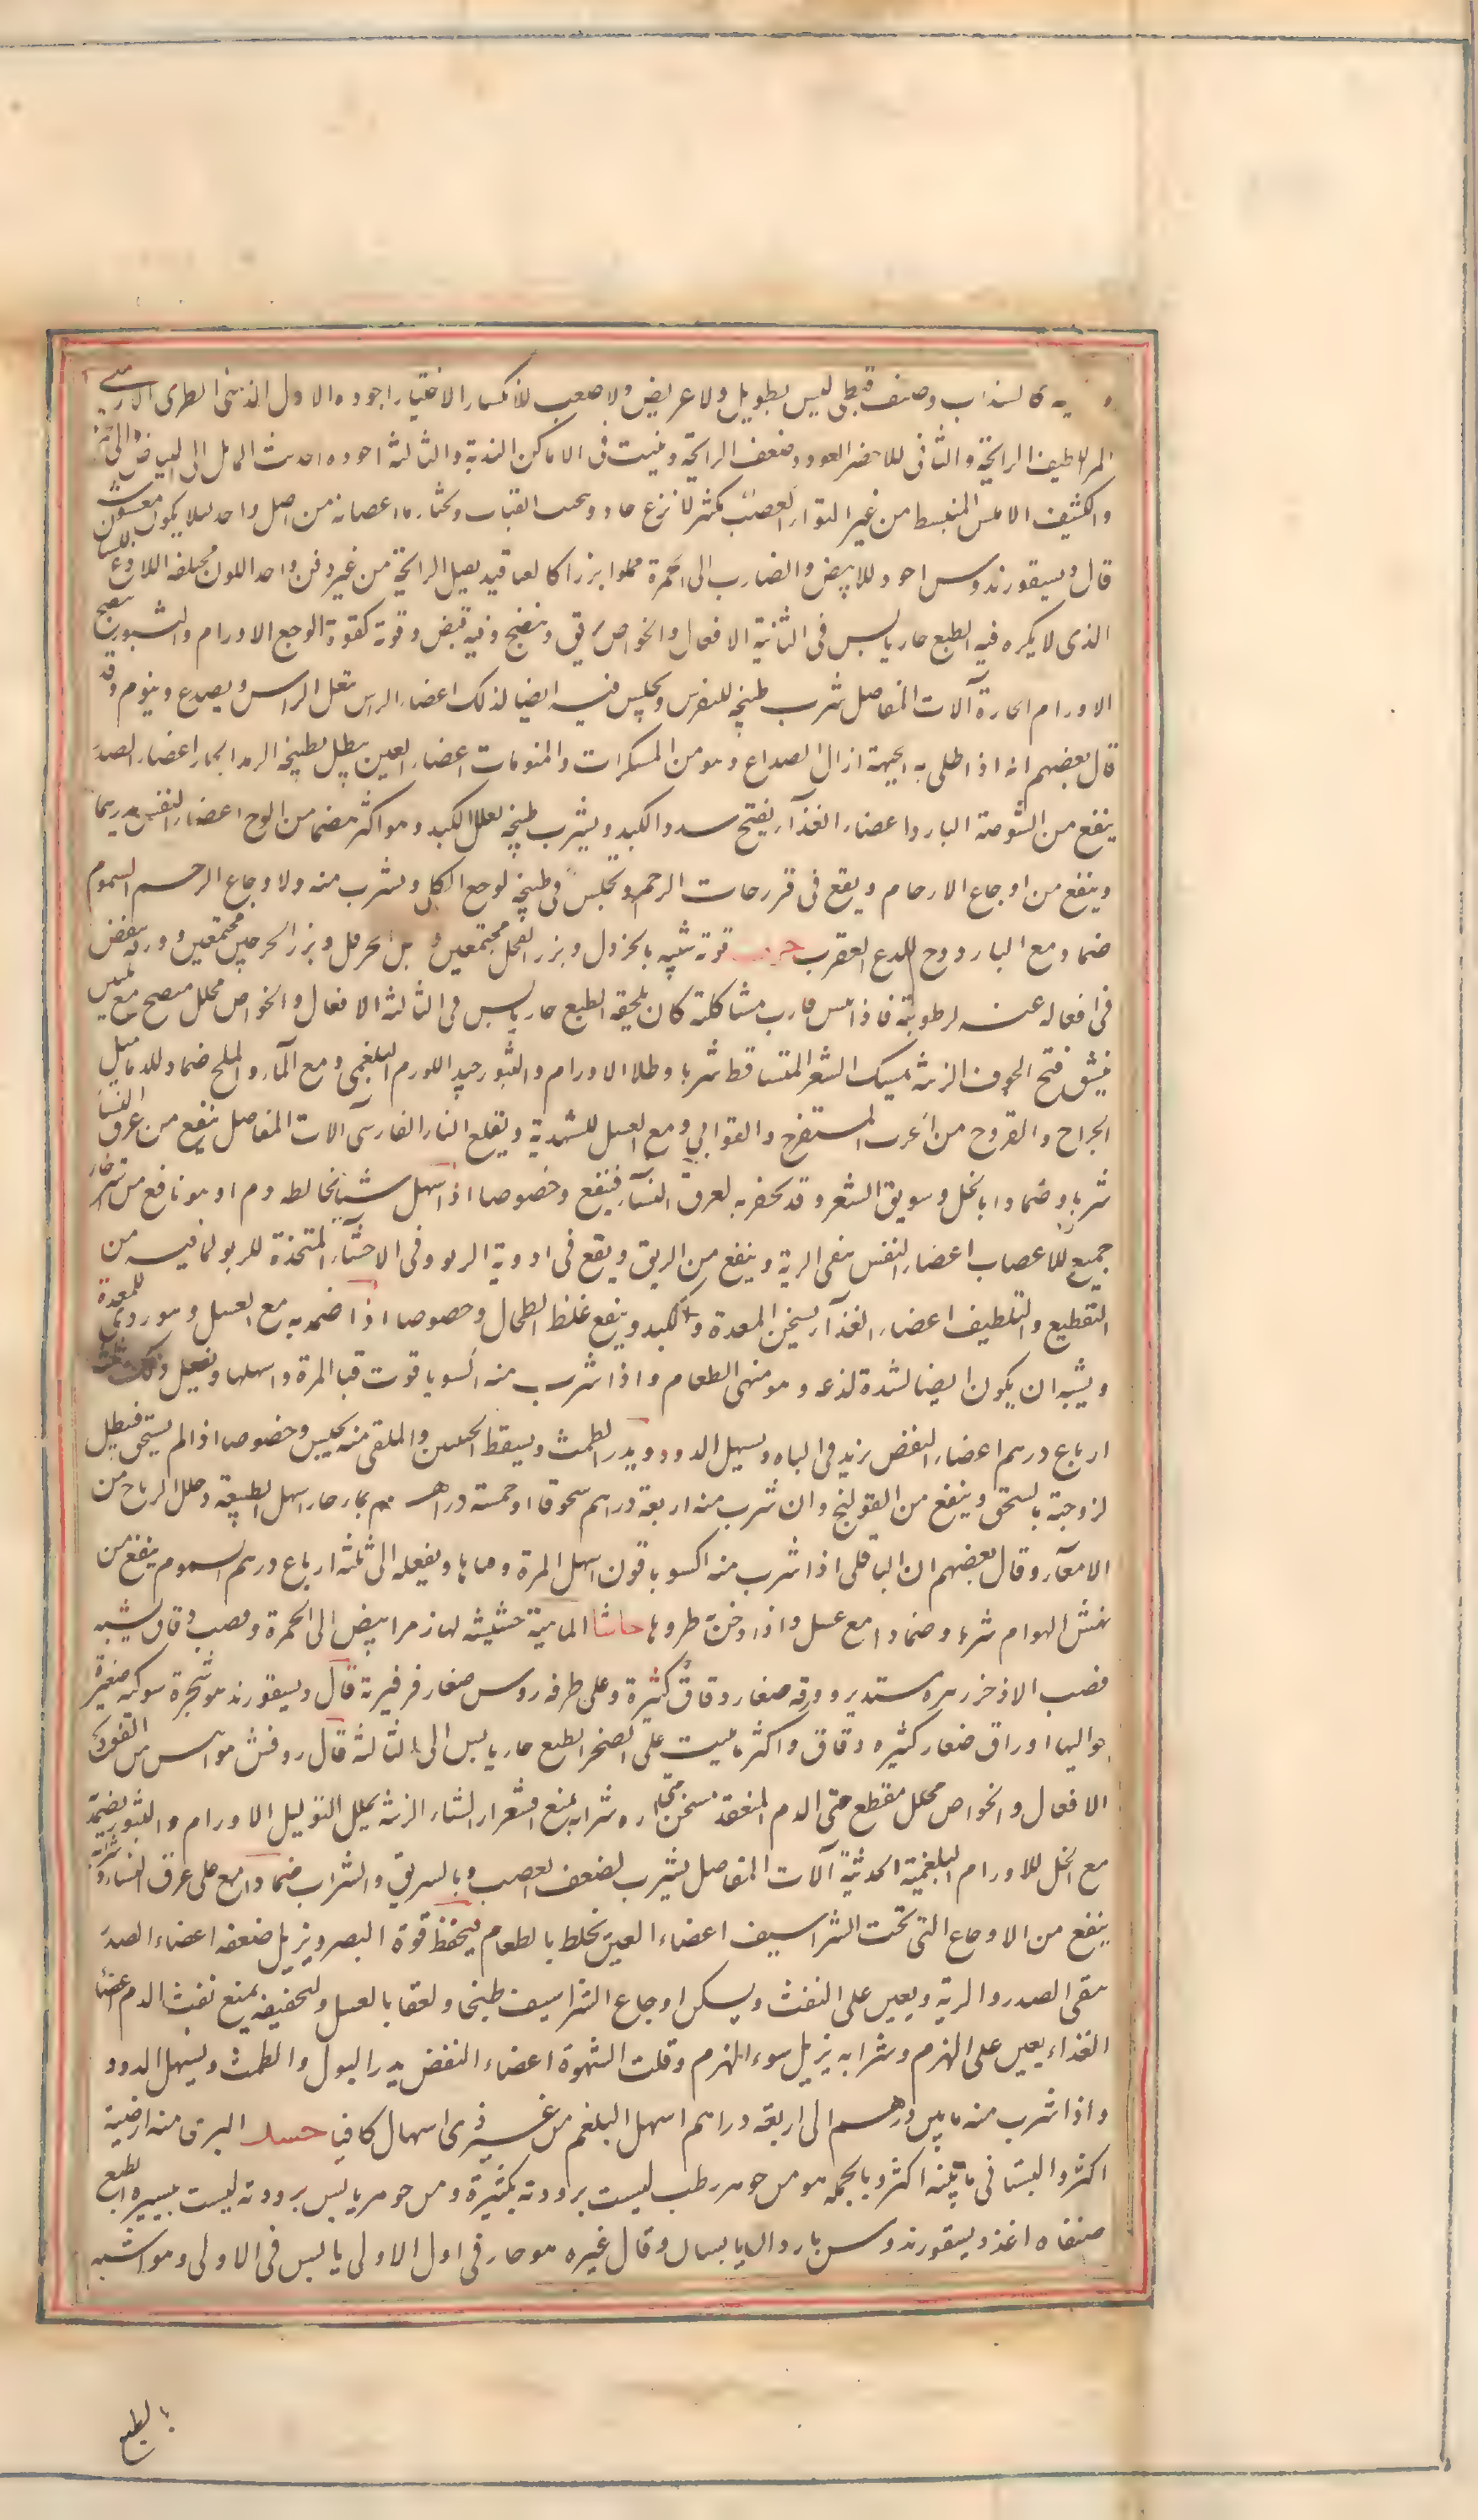 كالسذاب وصنف قبطى ليس بطويل ولا عريض ولا صعب للانكسار الاختيار اجوده الاول الذهبى الطرى الارمنى
المر الطيف الرائحة والثانى للاخضر العود وضعف الرائحة وينبت فى الاماكن الندية والثالثة اجوده الحديث المايل الى البياض
والكثيف الاملس المنبسط من غير التواء يكثر لا نزع حاد وتحت القباب ويختار ما اعصانه من اصل واحد ليلا يكون معسوس
قال ديسقورندوس اجود للابيض والضارب الى الحمرة مملوا بزرا كالعناقيد ثقيل الرائحة من غير دفن واحد اللون مختلفه اللاذع للسان
الذى لا يكره فيه الطبع حار يابس فى الثانية الافعال والخواص منضج وفيه قبض وقوة كقوة الوجع الاورام والبثور ينضج
الاورام الحارة آلات المفاصل يشرب طبيخه للنقرس ويجلس فيه ايضا لذلك اعضاء الراس يثقل الراس ويصدع وينوم وقد
قال بعضهم انه اذا طلى به الجبهة ازال الصداع وهو من المسكرات والمنومات اعضاء العين ينطل بطبيخه الرمد الحار اعضاء الصدر
ينفع من الشوصة البارد اعضاء الغذآء يفتح سدد الكبد ويشرب طبيخه لعلل الكبد وهو اكثر هضما من الوج اعضاء النفض
وينفع من اوجاع الارحام ويقع فى فررجات الرحم وتجلس فى طبيخه لوجع الكلى ويشرب منه ولاوجاع الرحم السموم
ضماد مع الباردوح للدع العقرب حرف قوته شبيه بالخردل وبزر الفجل مجتمعين و بل الحرمل وبزر الجرجير مجتمعين وورقه ينقض
فى افعاله عنه لرطوبته فاذا يبس قارب مشاكلته كان يلحقه الطبع حار يابس فى الثالثة الافعال والخواص محلل منضج مع تليين
ينشق قيح الجوف الزينة يمسك الشعر المتساقط شربا وطلا الاورام والبثور جيد اللورم البلغمى ومع الماء والملح ضماد للدماميل
الجراح والقروح من الجرب المتقرح والقوابى ومع العسل للشهدية ويقلع النار الفارسى آلات المفاصل ينفع من عرق النسا
شربا وضمادا بالخل وسويق الشعير وقد يحقن به لعرق النسآء فينفع وخصوصا اذا اسهل شيئا يخالطه دم او هو نافع من استرخاء
جميع للاعصاب اعضاء النفس ينقى الرية وينفع من الريق ويقع فى ادوية الربو وفى الاحشآء المتخذة للربو لما فيه من
التقطيع والتلطيف اعضاء الغذآء يسخن المعدة والكبد وينفع غلظ الطحال وخصوصا اذا ضمد به مع العسل وهو ردى للمعدة
ويشبه ان يكون ايضا لشدة لذعه وهو منهى الطعام واذا شرب منه اكسوباقوت قيا المرة واسهلها ويفعل ذلك ثلثة
ارباع درهم اعضاء النفض يزيد فى الباه ويسهل الدود ويدر الطمث ويسقط الجنين والمقلى منه يحبس وخصوصا اذا لم يسحق فيبطل
لزوجته بالسحق وينفع من القولنج وان شرب منه اربعة دراهم مسحوقا او خمسة دراهم بماء حار اسهل الطبيعة وحلل الرياح من
الامعآء وقال بعضهم ان الباقلى اذا شرب منه اكسوباقون اسهل المرة وقياها ويفعله الى ثلثة ارباع درهم السموم ينفع من
نهش الهوام شربا وضمادا مع عسل واذا دخن طردها حاشا الماهية حشيشة لها زهر ابيض الى الحمرة وقصب دقاق يشبه
قصب الاذخر زهره مستدير وورقه صغار دقاق كثيرة وعلى طرفه روس صغار فرفيرية قال ديسقورند هو شجرة شوكية صغيرة
حواليها اوراق صغار كثيره دقاق واكثر ما ينبت على الصخر الطبع حار يابس الى الثالثة قال روفس هو ايبس من الفودنج
الافعال والخواص محلل مقطع حتى الدم المنعقد مسخن شرابه يمنع اقشعرار الشتاء الزينة يحلل الثوليل الاورام والبثور يضمد
مع الخل للاورام البلغمية الحديثة آلات المفاصل يشرب لضعف العصب وبالسويق والشراب ضمادا مع على عرق النساء
ينفع من الاوجاع التى تحت الشراسيف اعضاء العين يخلط بالطعام فيحفظ قوة البصر ويزيل ضعفه اعضاء الصدر
ينقى الصدر والرية ويعين على النفث ويسكن اوجاع الشراسيف طبخا ولعقا بالعسل ولتجفيفه يمنع نفث الدم اعضا
الغذاء يعين على الهضم وشرابه يزيل سوء الهضم وقلت الشهوة اعضاء النفض يدر البول والطمث ويسهل الدود
واذا شرب منه ما بين درهم الى اربعة دراهم اسهل البلغم من غير اسهال كافيا حسك البرى منه ارضيته
اكثر والبستانى مائيته اكثر وبالجملة هو من جوهر رطب ليست برودته بكثيرة ومن جوهر يابس برودته ليست بيسيره الطبع
صنفاه عند ديسقورندوس باردان يابسان وقال غيره هو حار فى اول الاولى يابس فى الاولى وهو اشبه
بالطبع